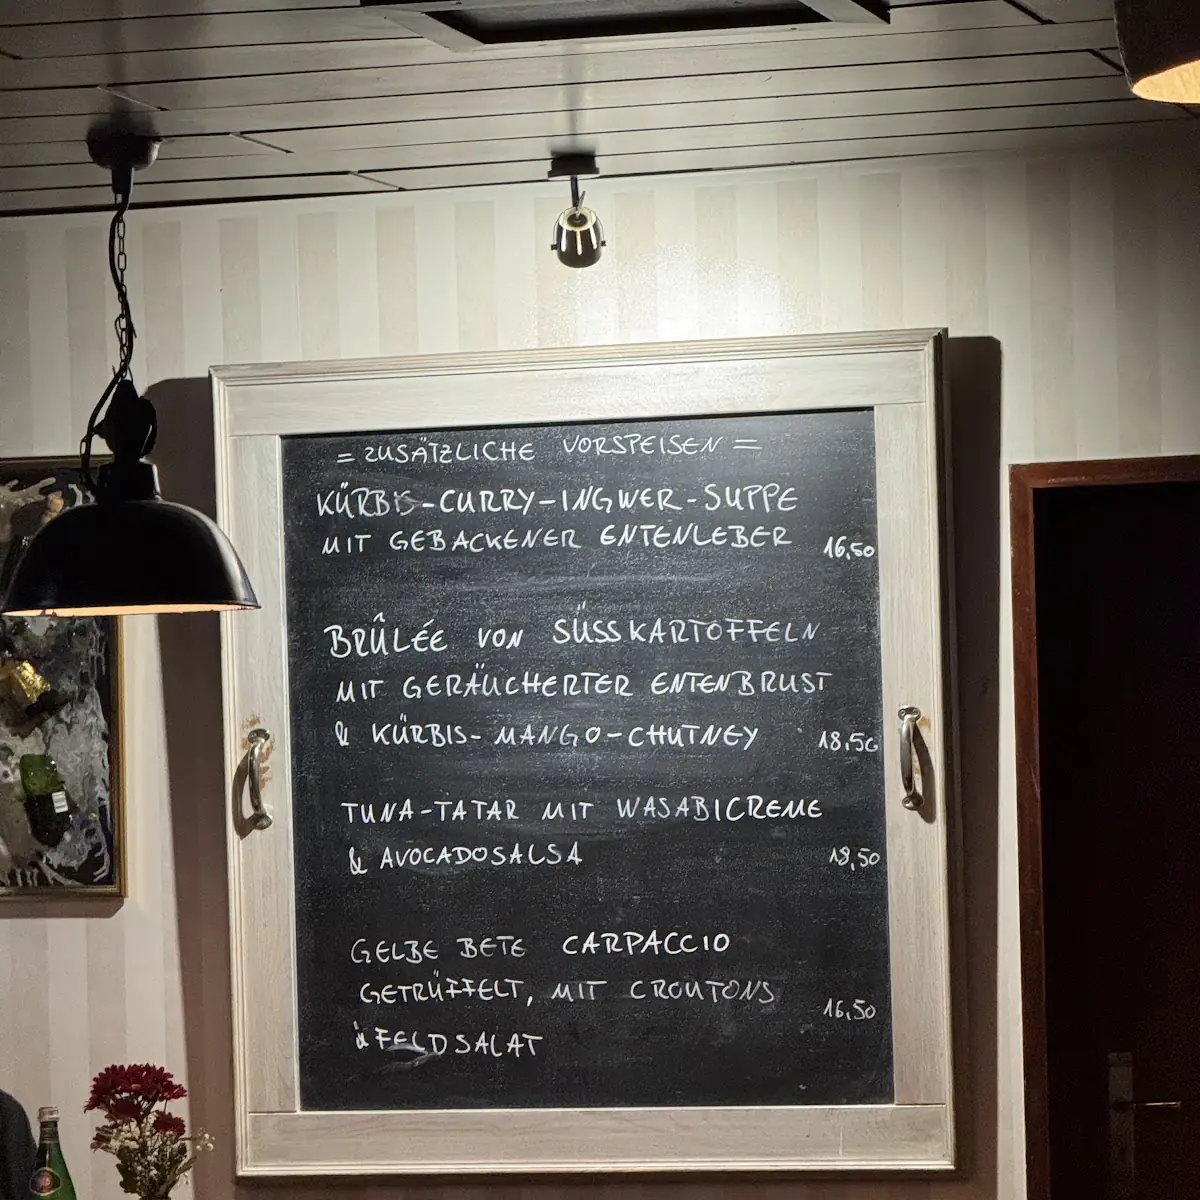 = ZUSÄTZLICHE VORSPEISEN =
KÜRBIS-CURRY-INGWER-SUPPE
MIT GEBACKENER ENTENLEBER 16,50
BRÛLÉE VON SÜSSKARTOFFELN
MIT GERÄUCHERTER ENTENBRUST
& KÜRBIS-MANGO-CHUTNEY 18,50
TUNA-TATAR MIT WASABICREME
& AVOCADOSALSA 18,50
GELBE BETE CARPACCIO
GETRÜFFELT, MIT CROUTONS 16,50
& FELDSALAT